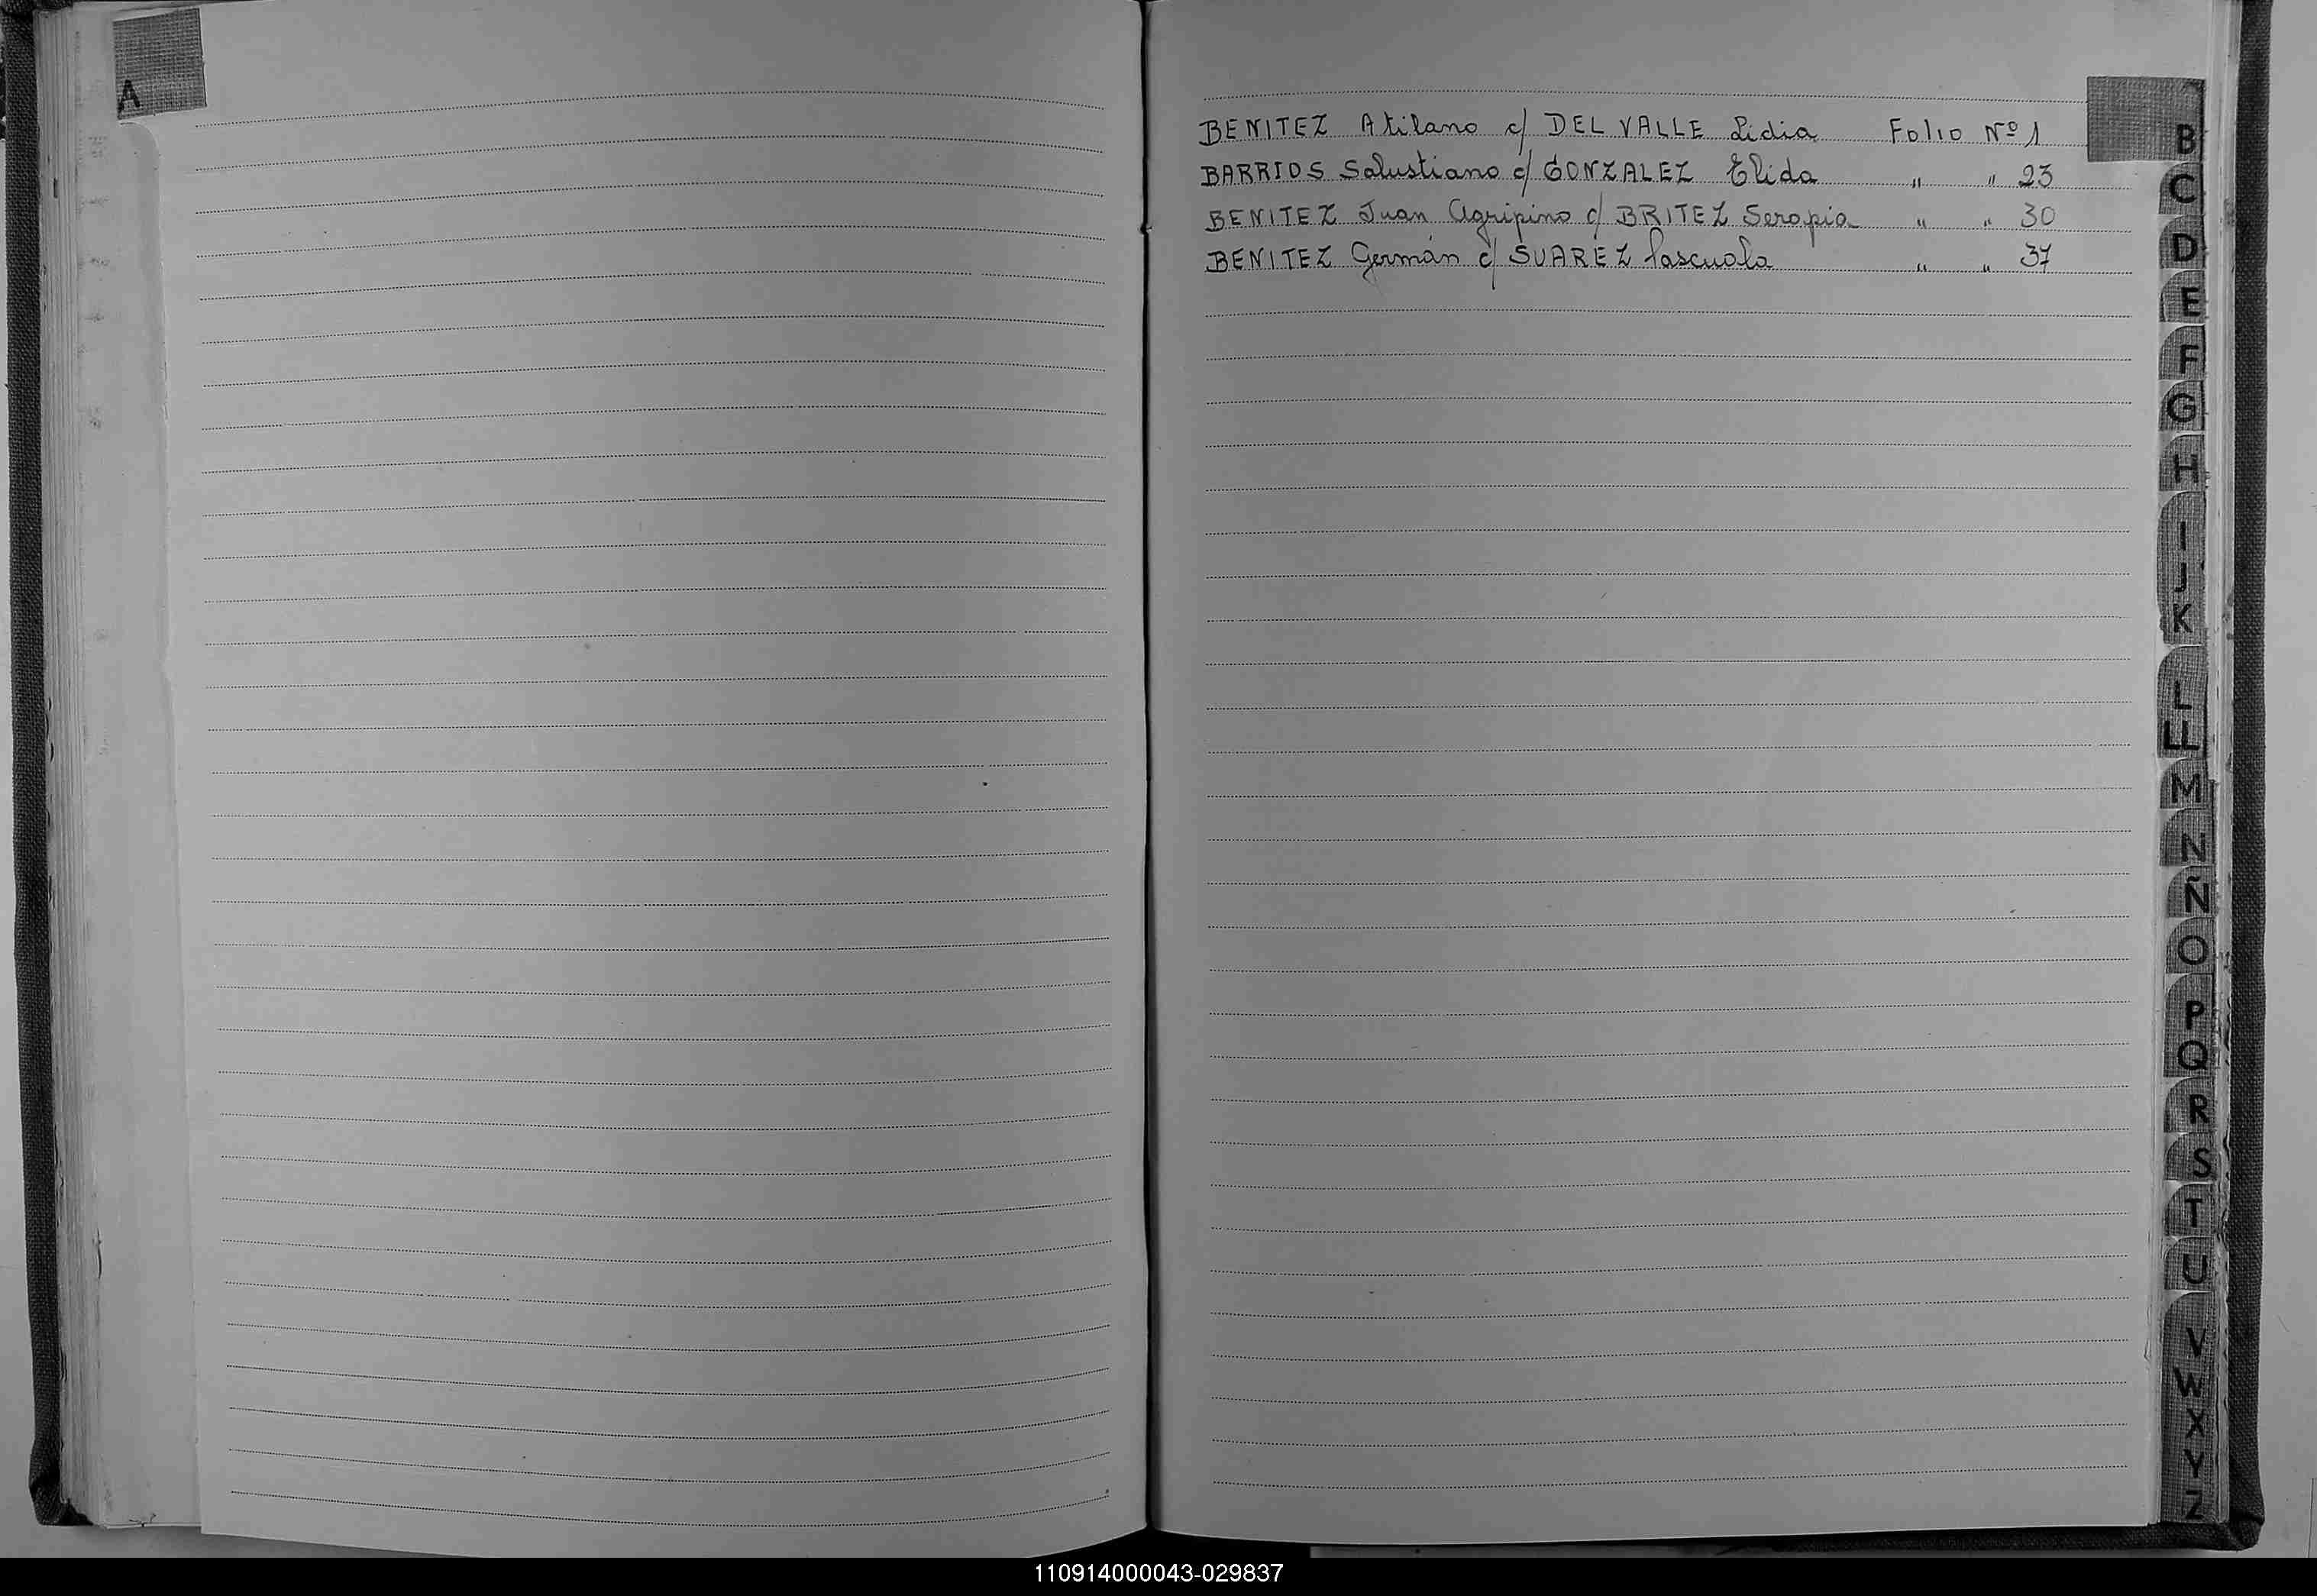 A
BENITEZ Atilano c/ DEL VALLE Lidia Folio Nº 1
BARRIOS Salustiano c/ GONZALEZ Elida " " 23
BENITEZ Juan Agripino c/ BRITEZ Serapia " " 30
BENITEZ Germán c/ SUAREZ Pascuala " " 37
B
C
D
E
F
G
H
I
J
K
L
LL
M
N
Ñ
O
P
Q
R
S
T
U
V
W
X
Y
Z
110914000043-029837